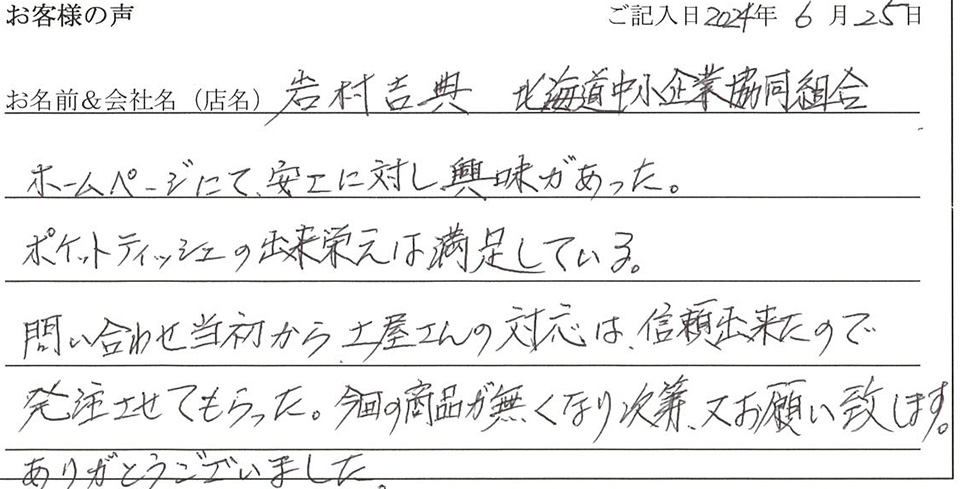 お客様の声 ご記入日2024年 6 月 25日
お名前&会社名（店名） 岩村吉典 北海道中小企業協同組合
ホームページにて、安エに対し興味があった。
ポケットティッシュの出来栄えは満足している。
問い合わせ当初から、土屋さんの対応は、信頼出来たので
発注させてもらった。今回の商品が無くなり次第、又お願い致します。
ありがとうございました。